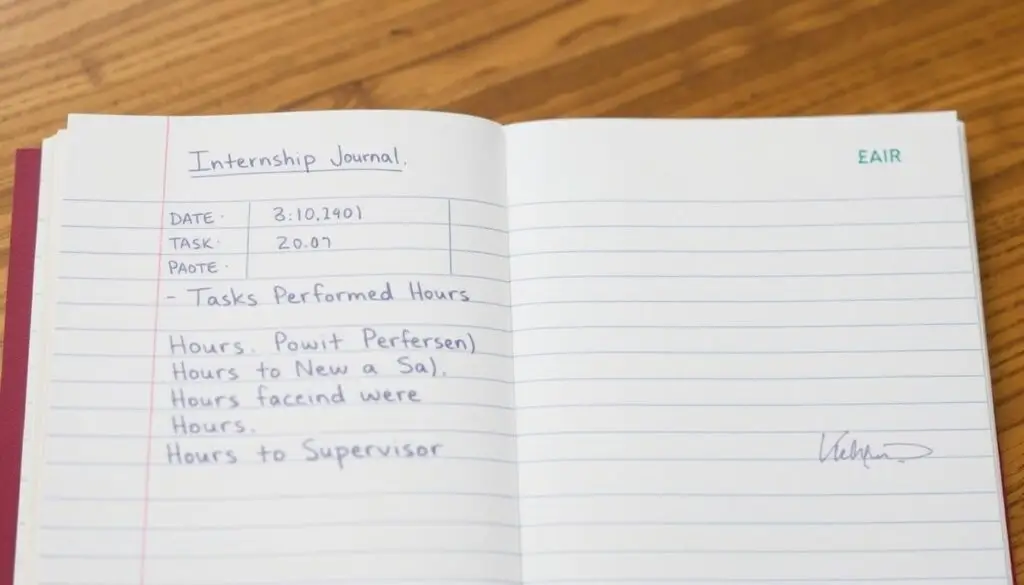 Internship Journal.
DATE · 3:10.1401
TASK · 20.07
PAOTE ·
- Tasks Performed Hours
Hours. Powit Perfersen)
Hours to New a Sa).
Hours faceind were
Hours.
Hours to Supervisor
EAIR